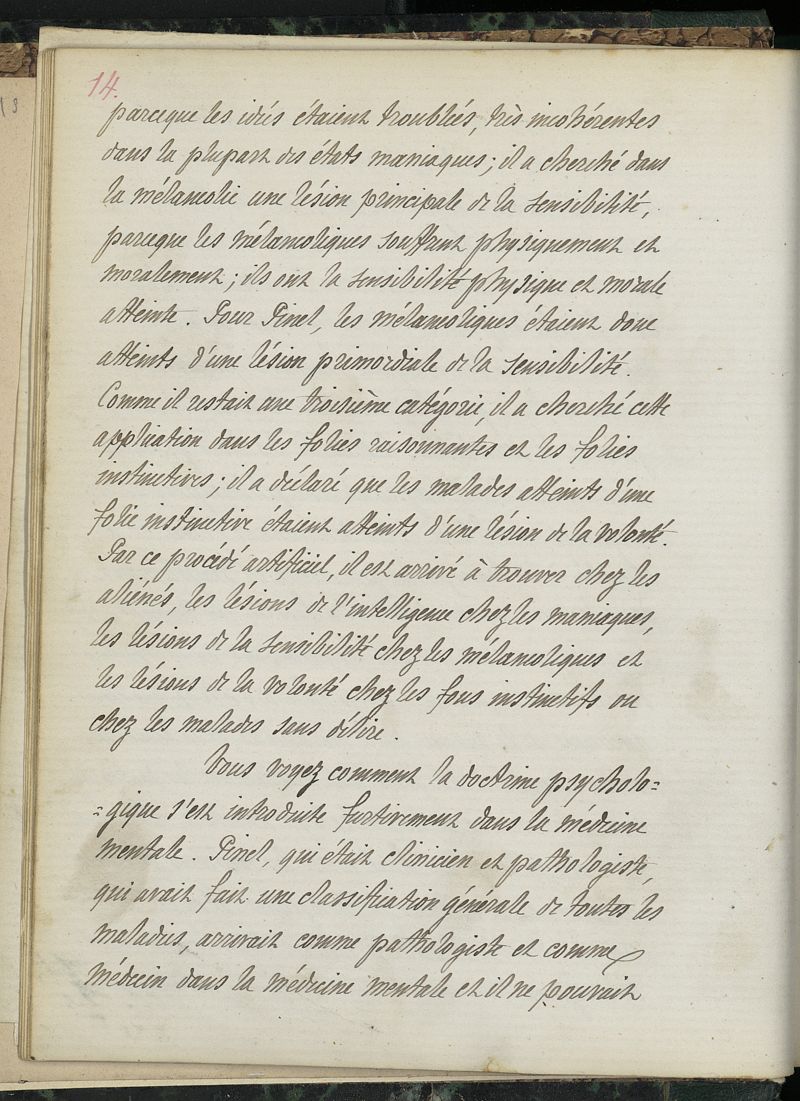 14.
parceque les idées étaient troublées, très incohérentes
dans la plupart des états maniaques ; il a cherché dans
la mélancolie une lésion principale de la sensibilité,
parceque les mélancoliques souffrent physiquement et
moralement ; ils ont la sensibilité physique et morale
atteinte. Pour Pinel, les mélancoliques étaient donc
atteints d'une lésion primordiale de la sensibilité.
Comme il restait une troisième catégorie, il a cherché cette
application dans les folies raisonnantes et les folies
instinctives ; il a déclaré que les malades atteints d'une
folie instinctive étaient atteints d'une lésion de la volonté.
Par ce procédé artificiel, il est arrivé à trouver chez les
aliénés, les lésions de l'intelligence chez les maniaques,
les lésions de la sensibilité chez les mélancoliques et
les lésions de la volonté chez les fous instinctifs ou
chez les malades sans délire.
Vous voyez comment la doctrine psycholo=
=gique s'est introduite furtivement dans la médecine
mentale. Pinel, qui était clinicien et pathologiste,
qui avait fait une classification générale de toutes les
maladies, arrivait comme pathologiste et comme
médecin dans la médecine mentale et il ne pouvait